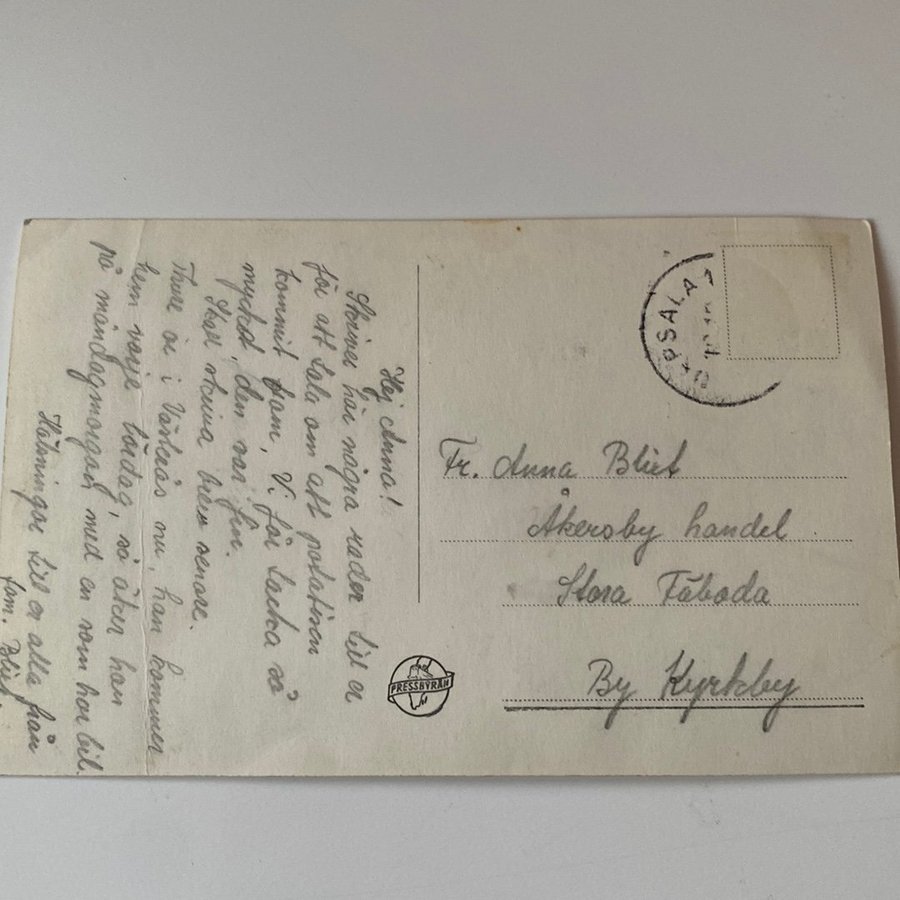 Hej Anna!
Skriver här några rader till er
för att tala om att potatisen
kommit fram, Vi får tacka så
mycket, den var fin.
Skall skriva brev senare.
Thure är i Västerås nu, han kommer
hem varje lördag, så åker han
på måndagmorgon med en som har bil.
Hälsningar till er alla från
fam. Bliet.
UPPSALA
Fr. Anna Bliet
Åkersby handel
Stora Fäboda
By Kyrkby
PRESSBYRÅN